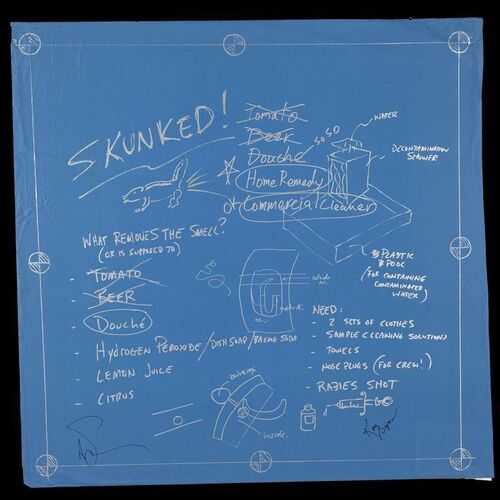 SKUNKED!
Tomato
Beer
Douché
Home Remedy
Commercial Cleaner
SO SO
WATER
DECONTAMINATION
SHOWER
PLASTIC
POOL
(FOR CONTAINING
CONTAMINATED
WATER)
WHAT REMOVES THE SMELL?
(OR IS SUPPOSED TO)
- TOMATO
- BEER
- Douché
- HYDROGEN PEROXIDE/DISH SOAP/BAKING SODA
- LEMON JUICE
- CITRUS
outside
NEED:
- 2 SETS OF CLOTHES
- SAMPLE CLEANING SOLUTIONS
- TOWELS
- NOSE PLUGS (FOR CREW!)
- RABIES SHOT
inside.